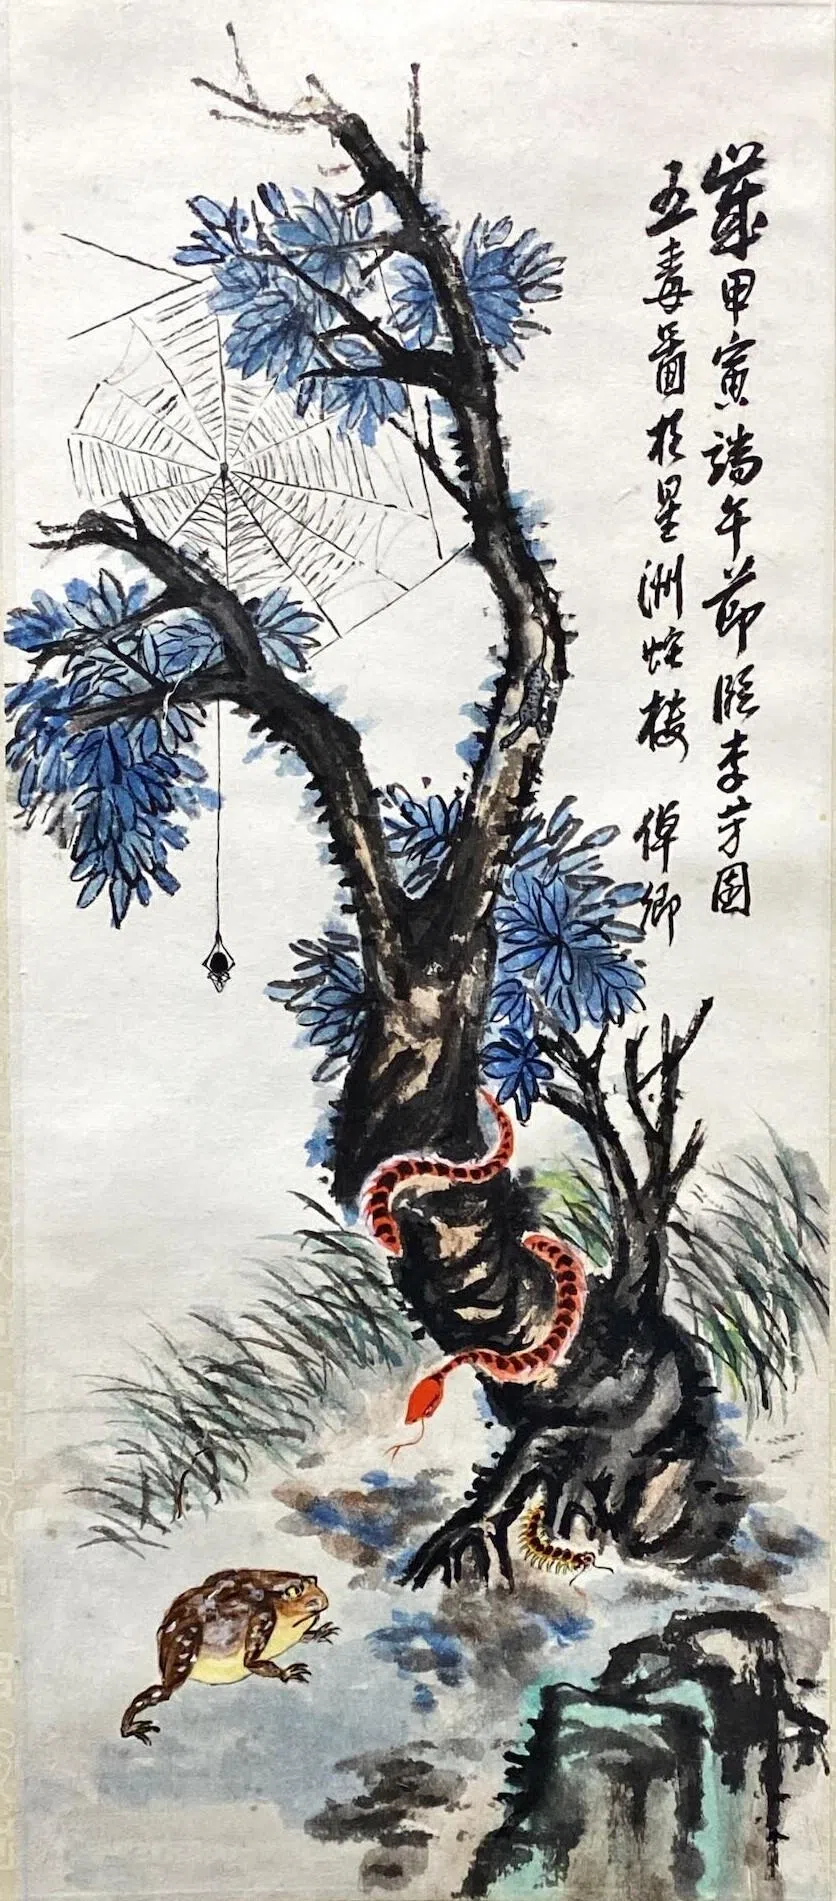 歲甲寅端午節臨李芳園
五毒圖於星洲蛇楼 倬卿